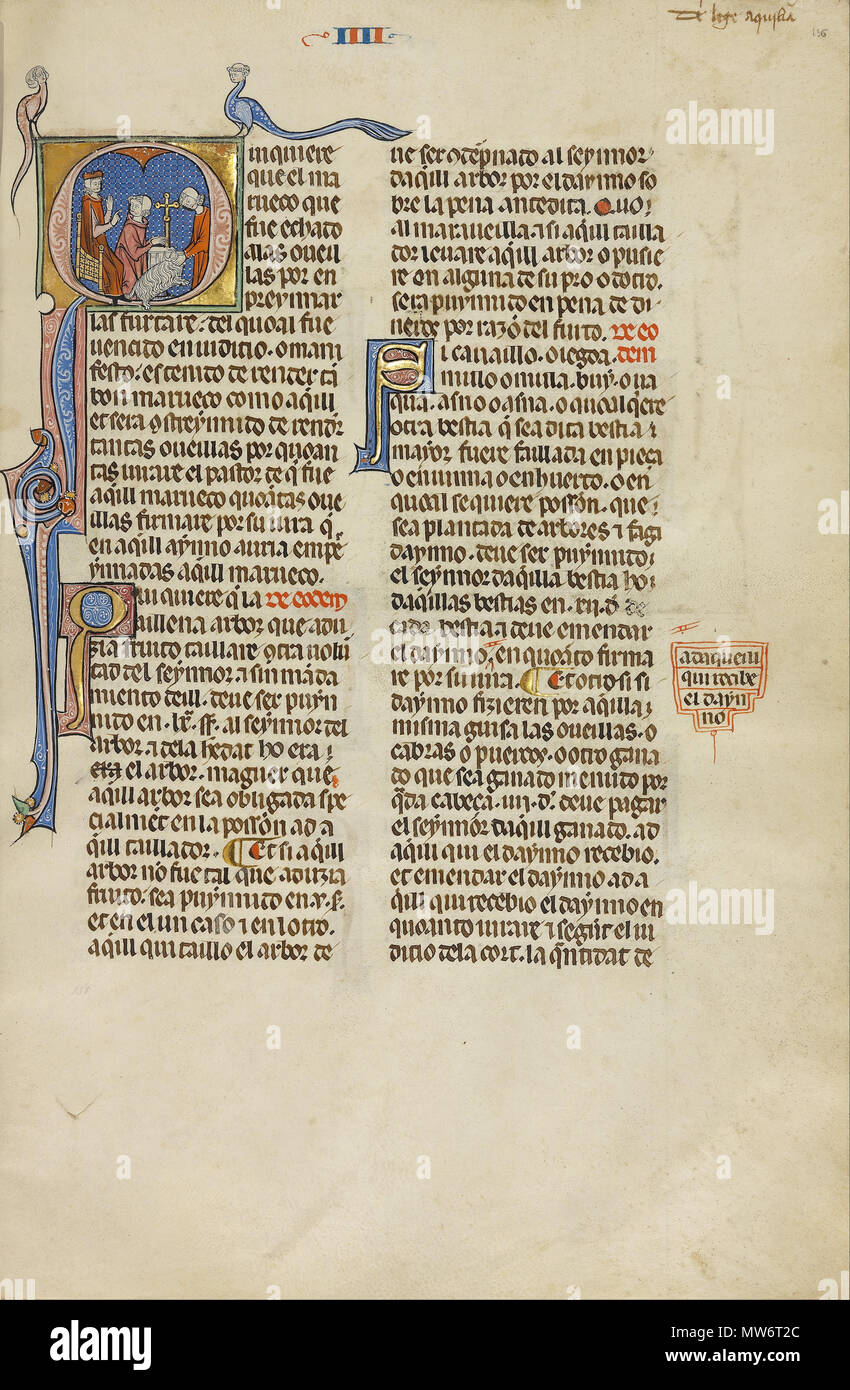 De lege Aquilia
136
IIII
Quinquiere
que el ma
rueco que
fue echado
alas oueil
las por en
preynnar
las furtare. del quoal fue
uencido en iuditio. o mani
fiesto: es tenido de render tā
bon marueco como aq̄ill
et sera ↄstreynnido de rendr̄
tantas oueillas por quoan
tas iurare el pastor de q̄ fue
aq̄ill marueco quoātas oue
illas firmare por su iura q̄
en aq̄ill aynno auria empē
ynnadas aq̄ill marueco.
Qui quiere q̄ la De eodem
aillena arbor que adu
zia fruito taillare ↄtra uolū
tad del seynnor ⁊ sin māda
miento deill. deue ser puyn
nido en. lx̄. ss̄. al seynnor del
arbor ⁊ dela hedat ho era
era el arbor. maguer que
aq̄ill arbor sea obligada spe
cialmēt en la possiōn ad a
q̄ill taillador. Et si aq̄ill
arbor nō fue tal que aduzia
fruito. sea puynnido en. x. s̄.
et en el un caso ⁊ en lotro.
aq̄ill qui taillo el arbor de
ue ser ↄdēpnado al seynnor
daq̄ill arbor por el daynno so
bre la pena antedita. Quo
al maraueilla ⁊ si aq̄ill tailla
dor leuare aq̄ill arbor o pusie
re en alguna de su pro o dotro.
sera puynnido en pena de di
uerde por razōn del fruito. De eo
Si cauaillo. o iegoa. dem
mullo o mulla. buy. o ua
qua. asno o asna. o quoal q̄ere
otra bestia q̄ sea dita bestia
mayor fuere faillada en pieça
o en uinna o en huerto. o en
quoal se quiere possiōn. que
sea plantada de arbores ⁊ faga
daynno. deue ser puynnido
el seynnor daq̄illa bestia ho
daq̄illas bestias en. .iii. d̄. de
cada bestia ⁊ deue emendar
el daynno, en quoāto firma
re por su iura. Et otro si si
daynno fizieren por aq̄illa
misma guisa las oueillas. o
cabras o puercos. o otro gana
do que sea ganado menudo por
q̄da cabeça. .iii. d̄. deue pagar
el seynnor daq̄ill ganado. ad
aq̄ill qui el daynno recebio.
et emendar el daynno ad a
q̄ill qui recebio el daynno en
quoanto iurare ⁊ segūt el iu
ditio dela cort. la q̄ntidat de
adaqueill
qui recibe
el dayn
no
alamy
Image ID: MW6T2C
www.alamy.com